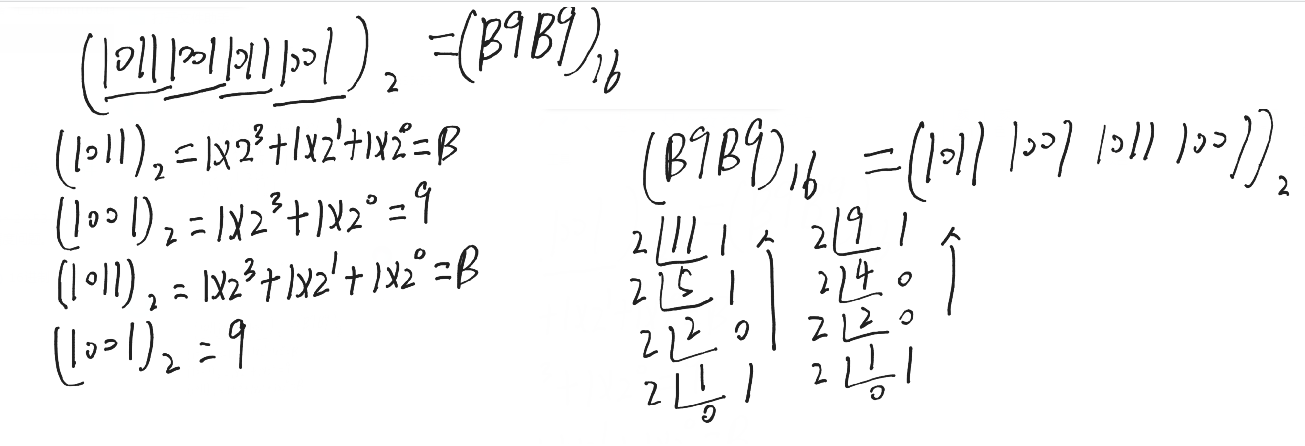 (1011100110111001)₂ = (B9B9)₁₆
(1011)₂ = 1×2³+1×2¹+1×2⁰=B
(1001)₂ = 1×2³+1×2⁰=9
(1011)₂ = 1×2³+1×2¹+1×2⁰=B
(1001)₂ = 9
(B9B9)₁₆ = (1011 1001 1011 1001)₂
2 11 1 2 9 1
2 5 1 2 4 0
2 2 0 2 2 0
2 1 1 2 1 1
0 0